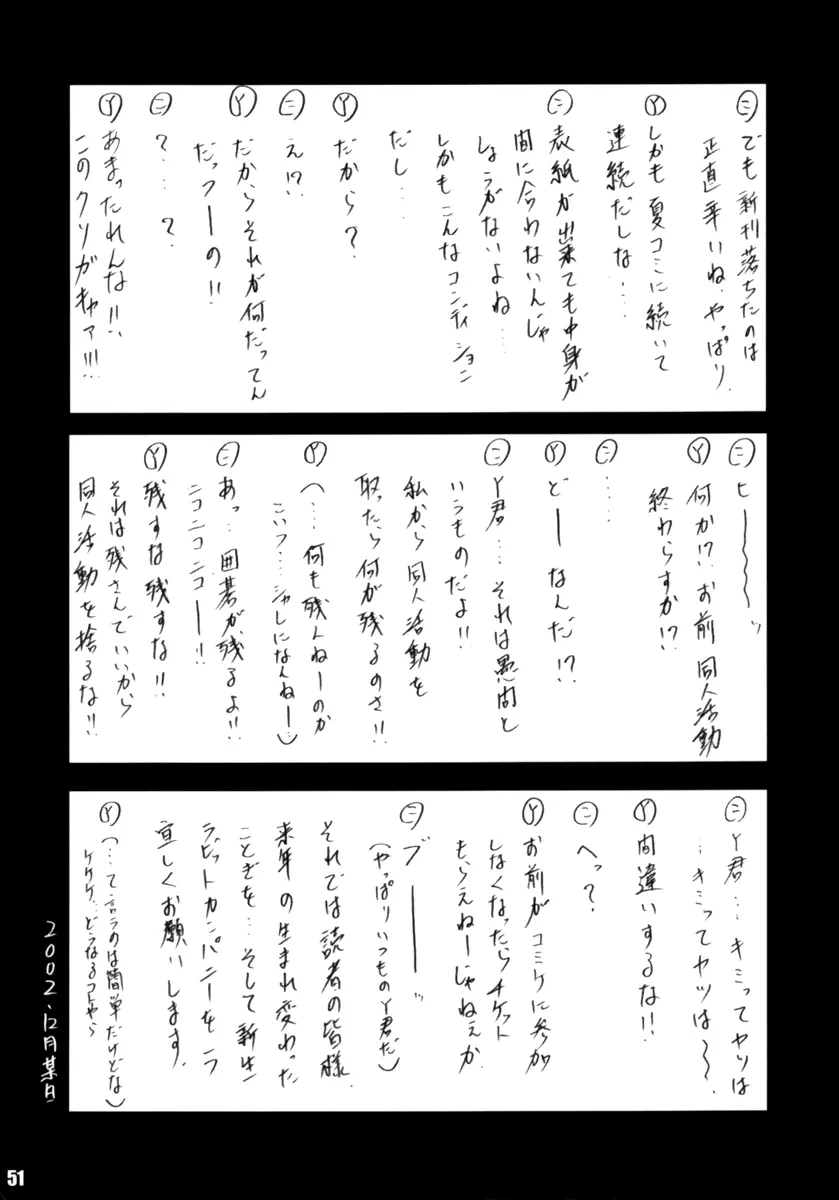 ㊁でも新刊落ちたのは
正直辛いね、やっぱり、
Ⓨしかも夏コミに続いて
連続だしな‥‥
㊁表紙が出来ても中身が
間に合わないんじゃ
しょうがないよね‥‥
しかもこんなコンディション
だし‥‥
Ⓨだから？
㊁え!?
Ⓨだからそれが何だってん
だっつーの!!
㊁？‥‥？
Ⓨあまったれんな!!、
このクソガキャァ!!!
㊁ヒー〜〜〜ッ
Ⓨ何か!?、お前同人活動
終わらすか!?
㊁‥‥
Ⓨどーなんだ!?
㊁Y君‥‥それは愚問と
いうものだよ!!
私から同人活動を
取ったら何が残るのさ!!
Ⓨ(‥‥何も残んねーのか
こいつ‥‥シャレになんねー‥‥)
㊁あっ‥囲碁が残るよ!!
ニコニコニコー!!
Ⓨ残すな残すな!!
それは残さんでいいから
同人活動を捨るな!!
㊁Y君‥‥キミってヤツは
‥‥キミってヤツは〜〜、
Ⓨ間違いするな!!
㊁へっ？
Ⓨお前がコミケに参加
しなくなったらチケット
もらえねーじゃねぇか、
㊁ブーーーッ
(やっぱりいつものY君だ)
それでは読者の皆様
来年の生まれ変わった
ことぎを‥‥そして新生
ラビットカンパニーをヨ
宜しくお願いします、
Ⓨ(‥‥て言うのは簡単だけどな
ケケケ‥‥どうなるコトやら)
2002、12月某日
51